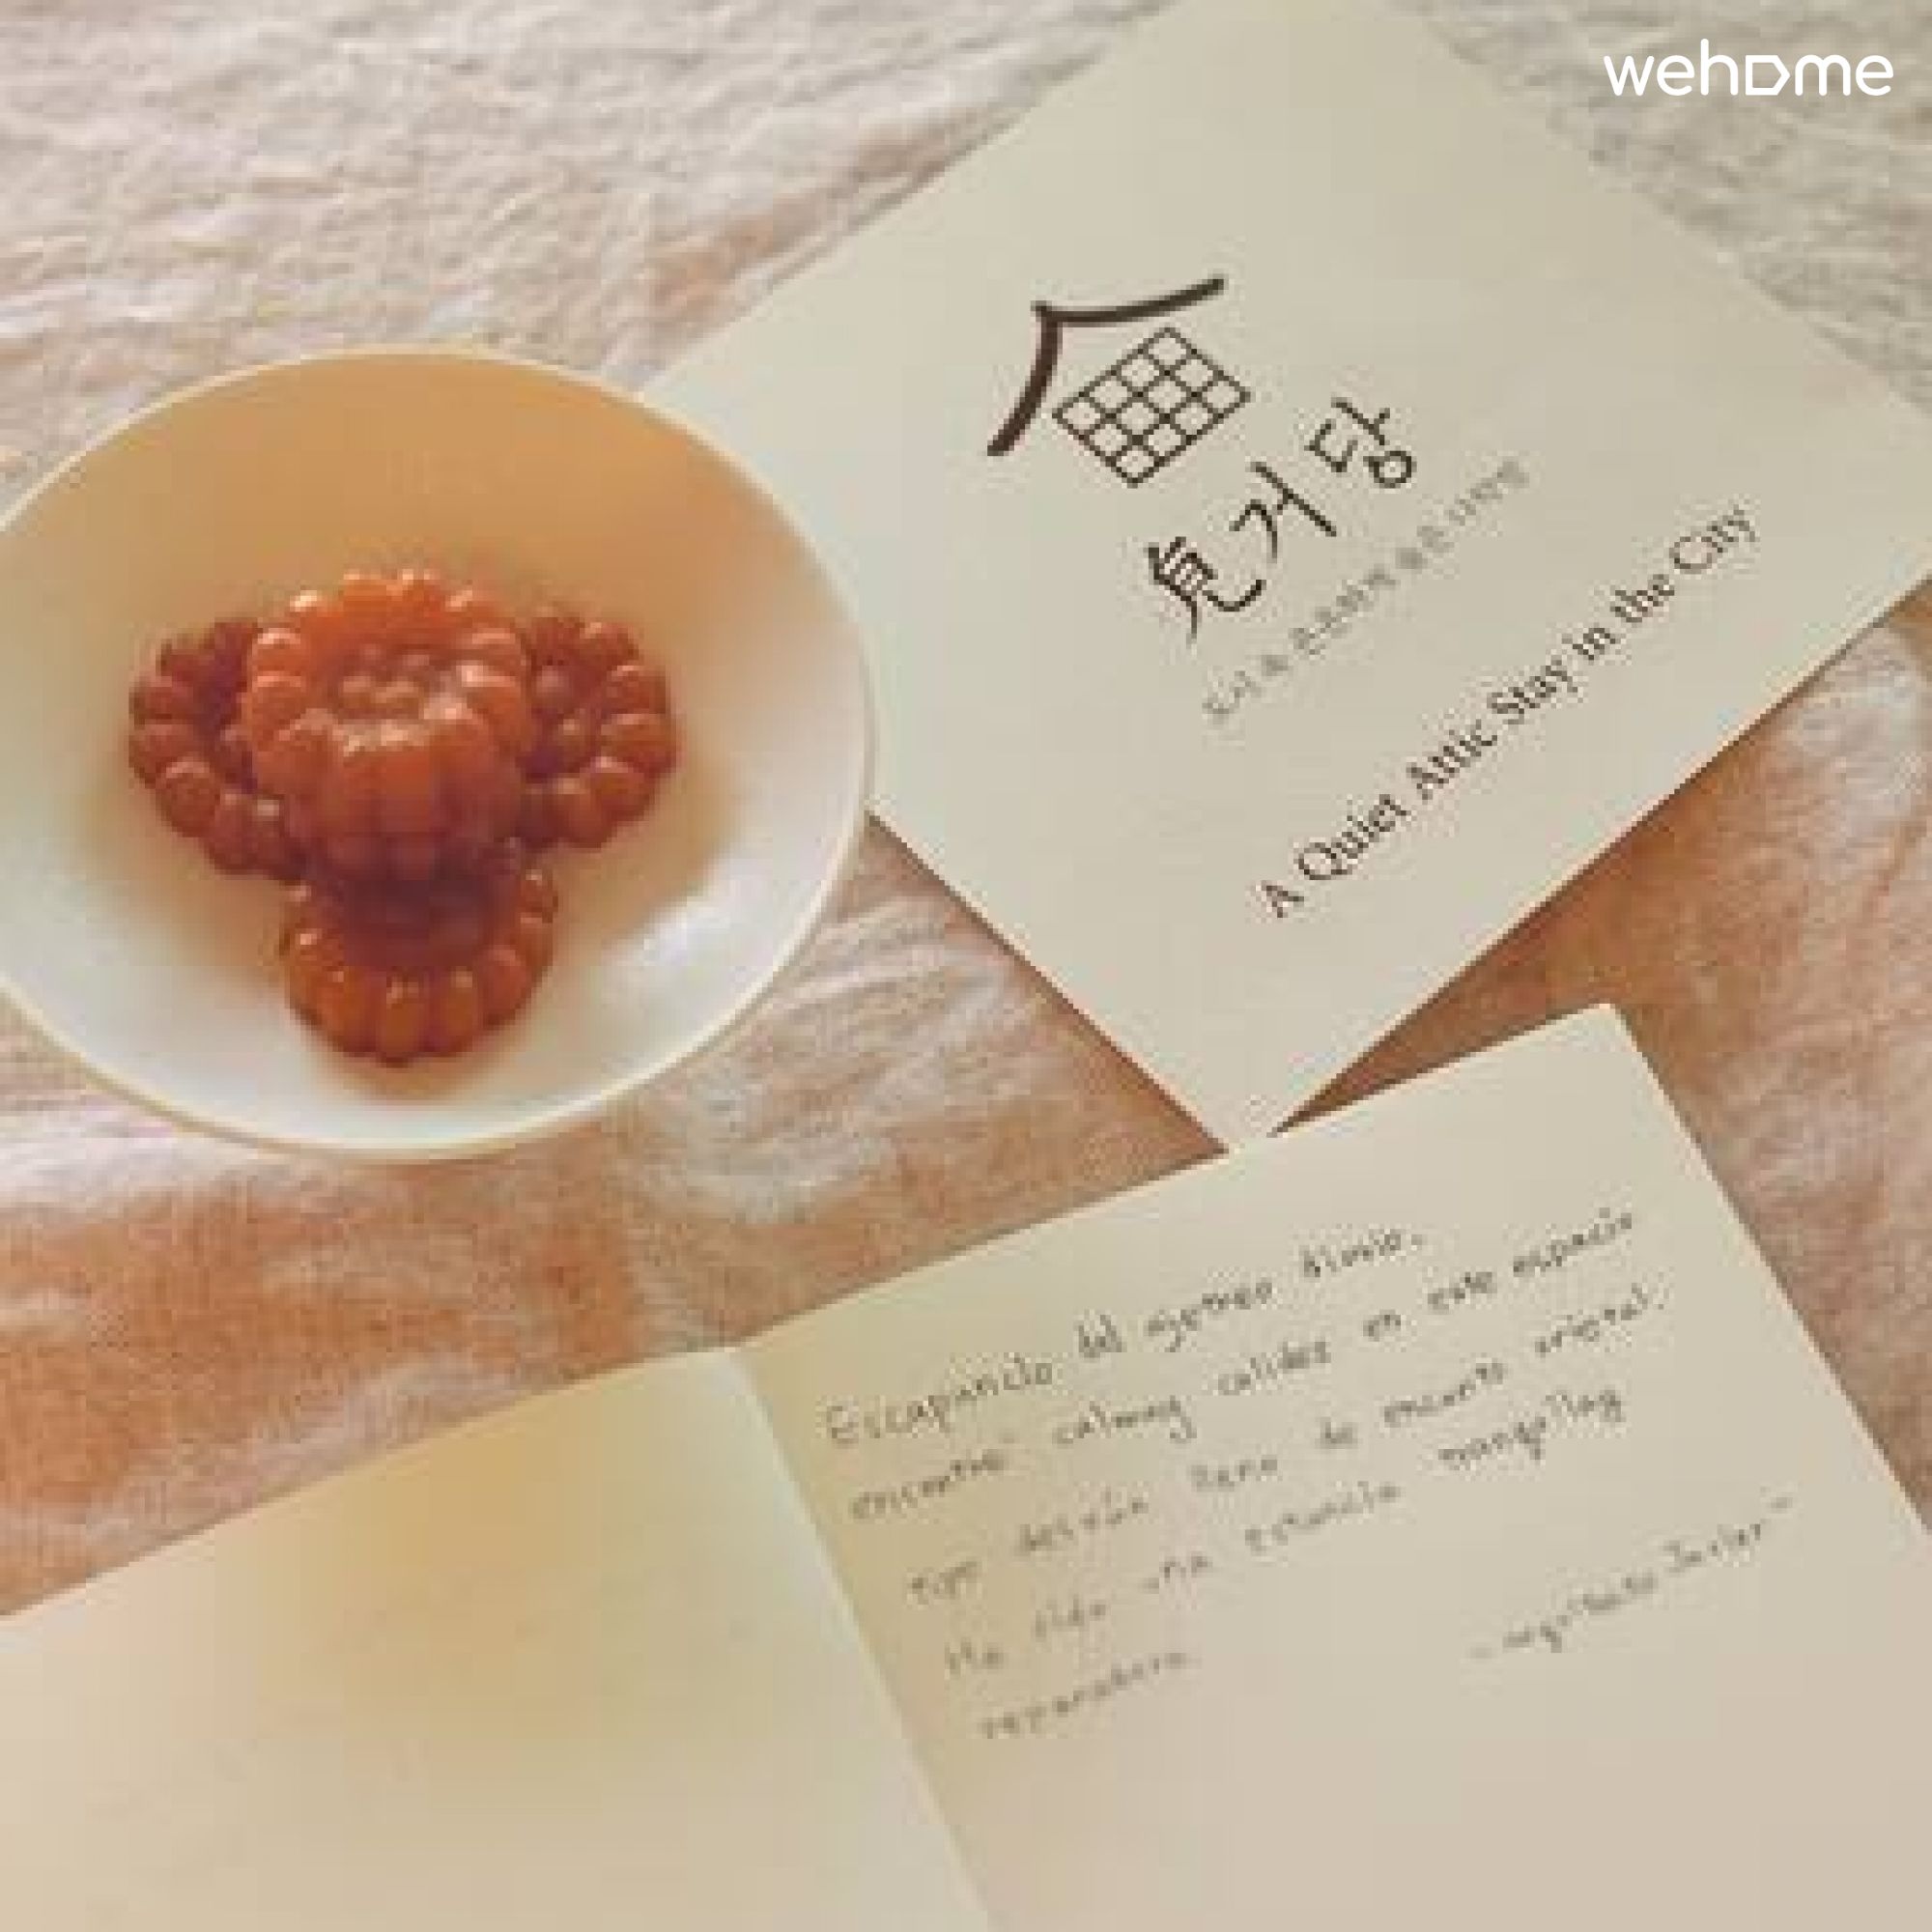 wehome
거당
도시 속
A Quiet Attic Stay in the City
Escapando del ajetreo diario,
encontré calma y calidez en este espacio
tipo desván lleno de encanto oriental.
Ha sido una estancia
reparadora.
Javier -